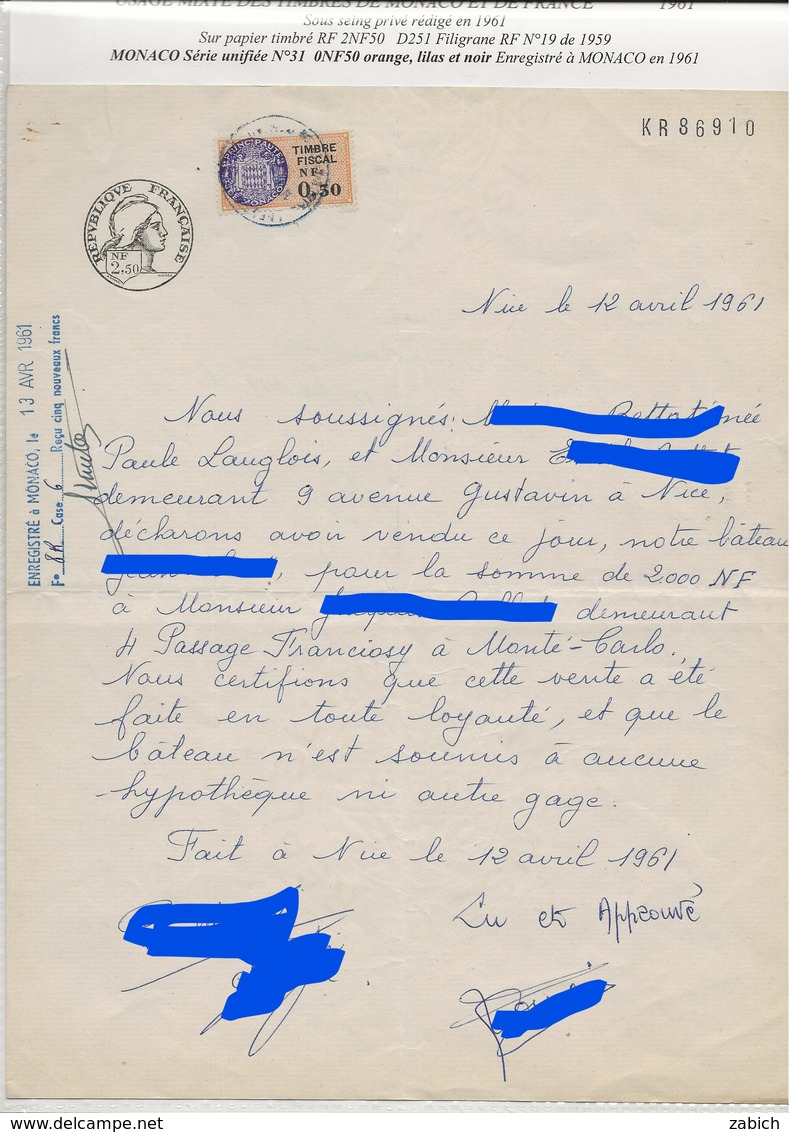 USAGE MIXTE DES TIMBRES DE MONACO ET DE FRANCE 1961
Sous seing privé rédigé en 1961
Sur papier timbré RF 2NF50 D251 Filigrane RF N°19 de 1959
MONACO Série unifiée N°31 0NF50 orange, lilas et noir Enregistré à MONACO en 1961
KR86910
TIMBRE
FISCAL
NF
0,50
PRINCIPAUTÉ DE MONACO
REPVBLIQVE FRANÇAISE
NF
2,50
Nice le 12 avril 1961
ENREGISTRÉ à MONACO, le 13 AVR 1961
F° 8R Case 6 Reçu cinq nouveaux francs
Nous soussignés née
Paule Langlois, et Monsieur
demeurant 9 avenue Gustavin à Nice,
déclarons avoir vendu ce jour, notre bâteau
, pour la somme de 2.000 NF
à Monsieur demeurant
4 Passage Franciosy à Monté-Carlo.
Nous certifions que cette vente a été
faite en toute loyauté, et que le
bâteau n'est soumis à aucune
hypothèque ni autre gage.
Fait à Nice le 12 avril 1961
Lu et Approuvé
zabich